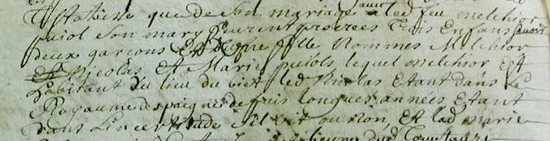 que de son mariage avec led feu melchior
puiol son mary furent procrées trois enfans savoir
deux garcons et une fille nommes Melchior
Nicolas et Marie puiols lequel melchior est
habitant du lieu du led Nicolas etant dans le
Royaume despagne depuis longues années etant
dans lincertitude sil vit ou non, et lad marie